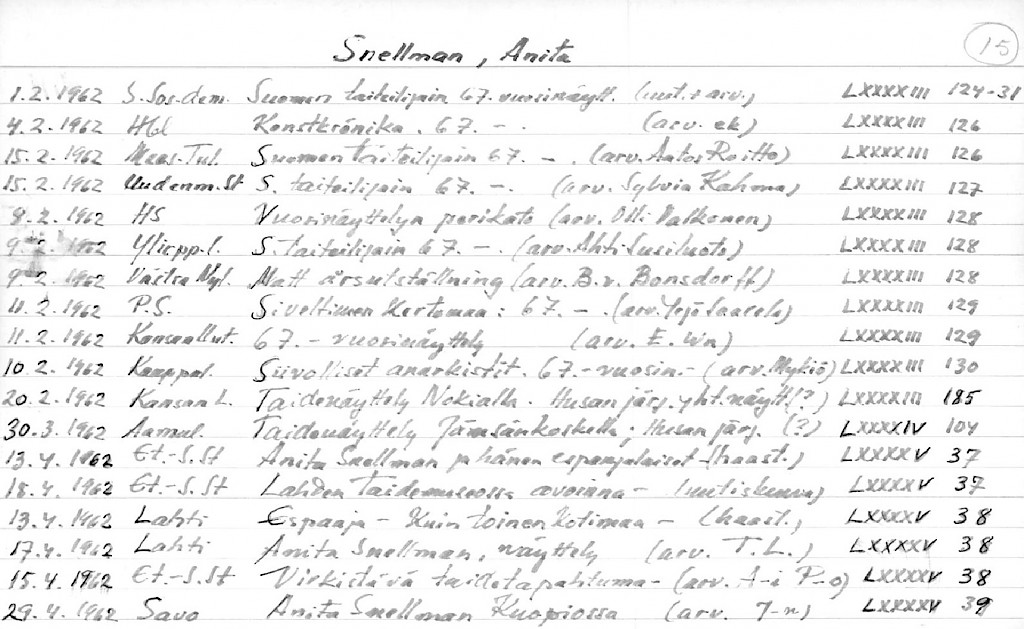 15
Snellman, Anita
1.2.1962 S.Sos.dem. Suomen taiteilijain 67. vuosinäytt. (uut. + arv.) LXXXXIII 124-31
4.2.1962 Hbl Konstkrönika. 67. -. (arv. ek) LXXXXIII 126
15.2.1962 Maas.Tul. Suomen taiteilijain 67. -. (arv. Antos Roitto) LXXXXIII 126
15.2.1962 Uudenm.St S. taiteilijain 67. -. (arv. Sylvia Kahma) LXXXXIII 127
8.2.1962 HS Vuosinäyttelyn porikato (arv. Olli Valkonen) LXXXXIII 128
9.2.1962 Yliopp.l. S. taiteilijain 67. -. (arv. Ahti Susiluoto) LXXXXIII 128
9.2.1962 Västra Nyl. Matt årsutställning (arv. B.v. Bonsdorff) LXXXXIII 128
11.2.1962 P.S. Siveltimen kertomaa: 67. -. (arv. Yrjö Saarela) LXXXXIII 129
11.2.1962 Kansallut. 67. - vuosinäyttely (arv. E. Wn) LXXXXIII 129
10.2.1962 Kauppal. Siivolliset anarkistit. 67. - vuosin. - (arv. Mykiö) LXXXXIII 130
20.2.1962 Kansan L. Taidenäyttely Nokialla. Husan järj. yht. näytt. (?) LXXXXIII 185
30.3.1962 Aamul. Taidenäyttely Jämsänkoskella; Husan järj. (?) LXXXXIV 104
13.4.1962 Et.-S.St Anita Snellman ja hänen espanjalaiset - (haast.) LXXXXV 37
18.4.1962 Et.-S.St Lahden Taidemuseossa avoinna - (uutiskuva) LXXXXV 37
13.4.1962 Lahti Espanja - kuin toinen kotimaa - (haast.) LXXXXV 38
17.4.1962 Lahti Anita Snellman, näyttely (arv. T.L.) LXXXXV 38
15.4.1962 Et.-S.St Virkistävä taidetapahtuma - (arv. A-i P-o) LXXXXV 38
29.4.1962 Savo Anita Snellman Kuopiossa (arv. J-n) LXXXXV 39